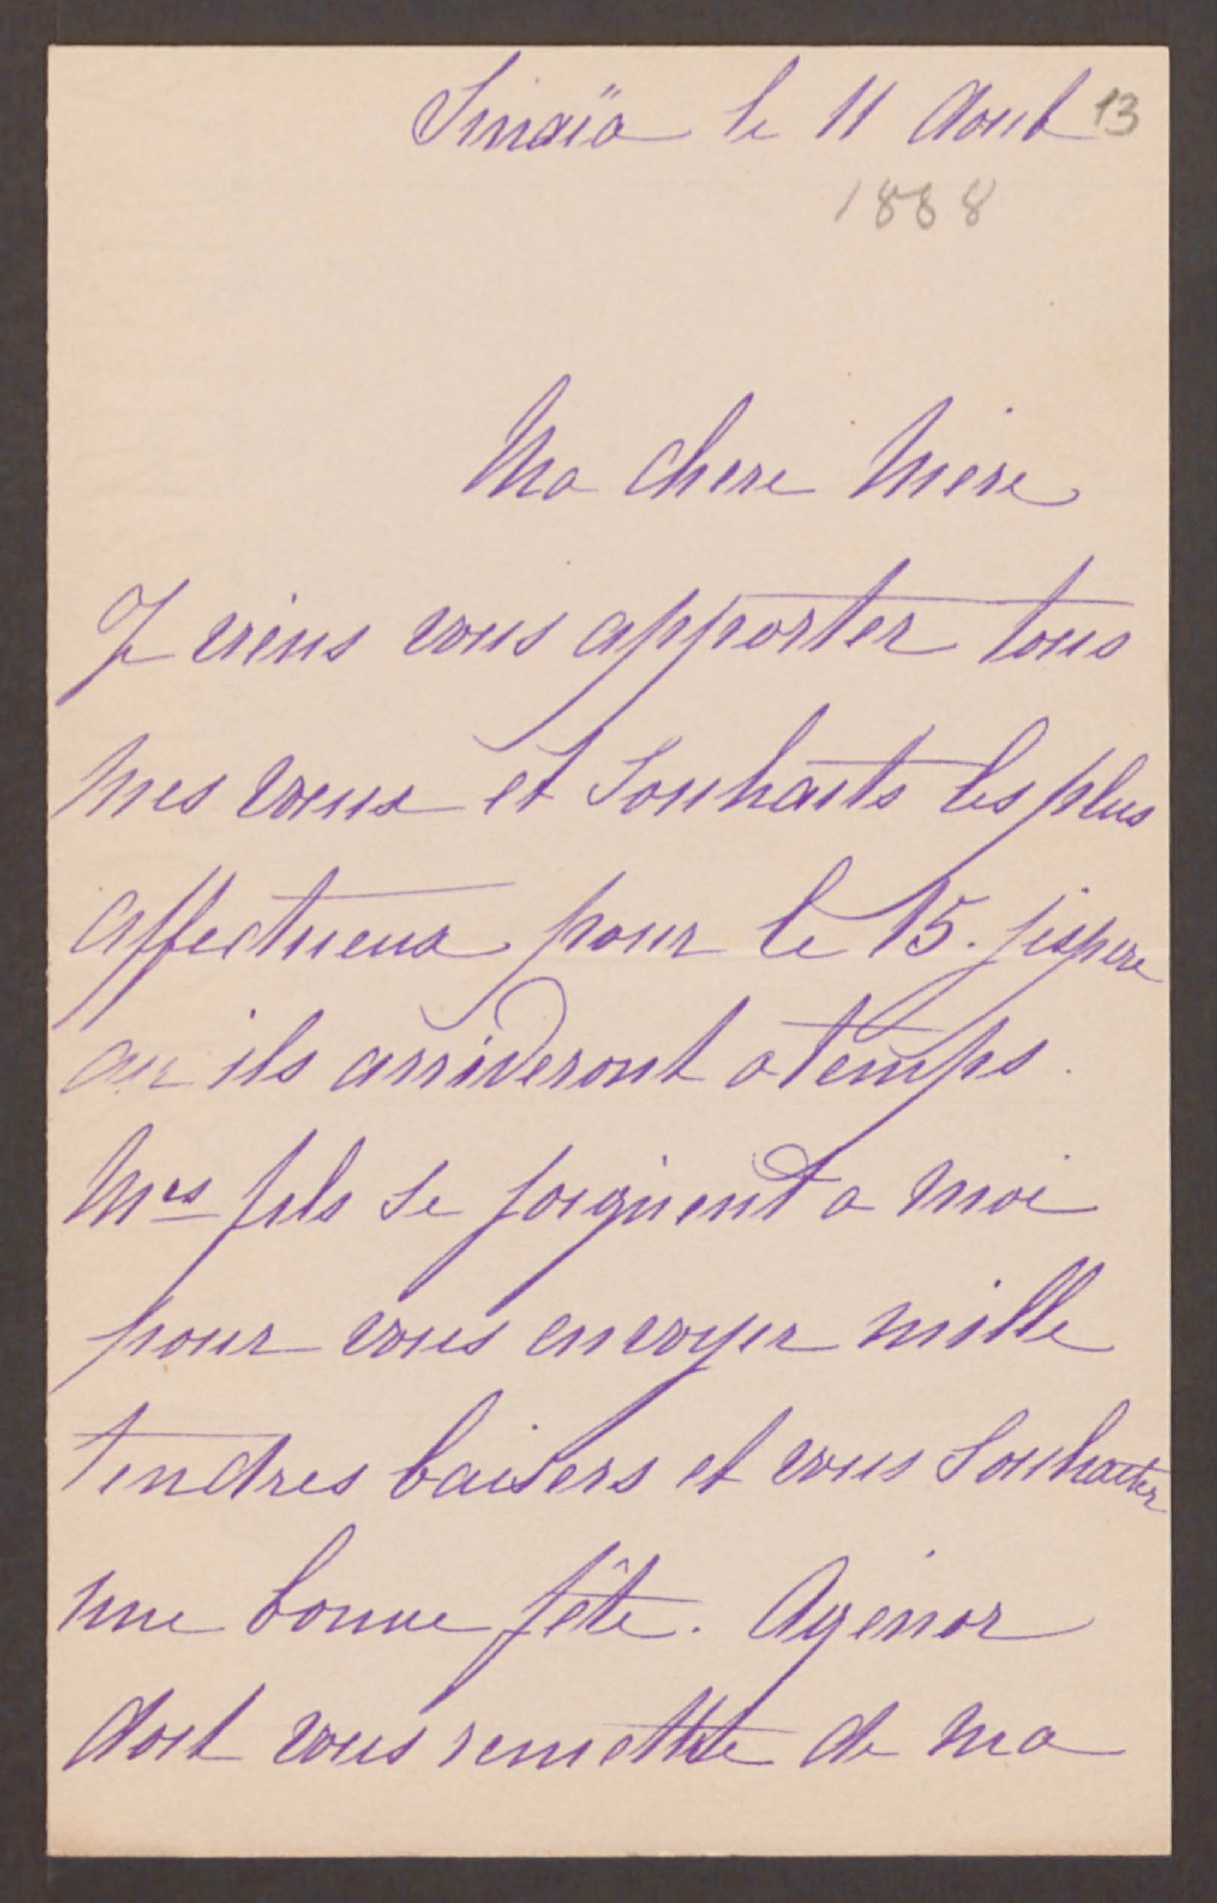 Sinaïa le 11 Aout 13
1888
Ma chere Mere
Je viens vous apporter tous
mes voeux et souhaits les plus
affectueux pour le 15. j'espere
qu'ils arriveront a temps.
Mes fils se joignent a moi
pour vous envoyer mille
tendres baisers et vous souhaiter
une bonne fête. Agenor
doit vous remettre de ma